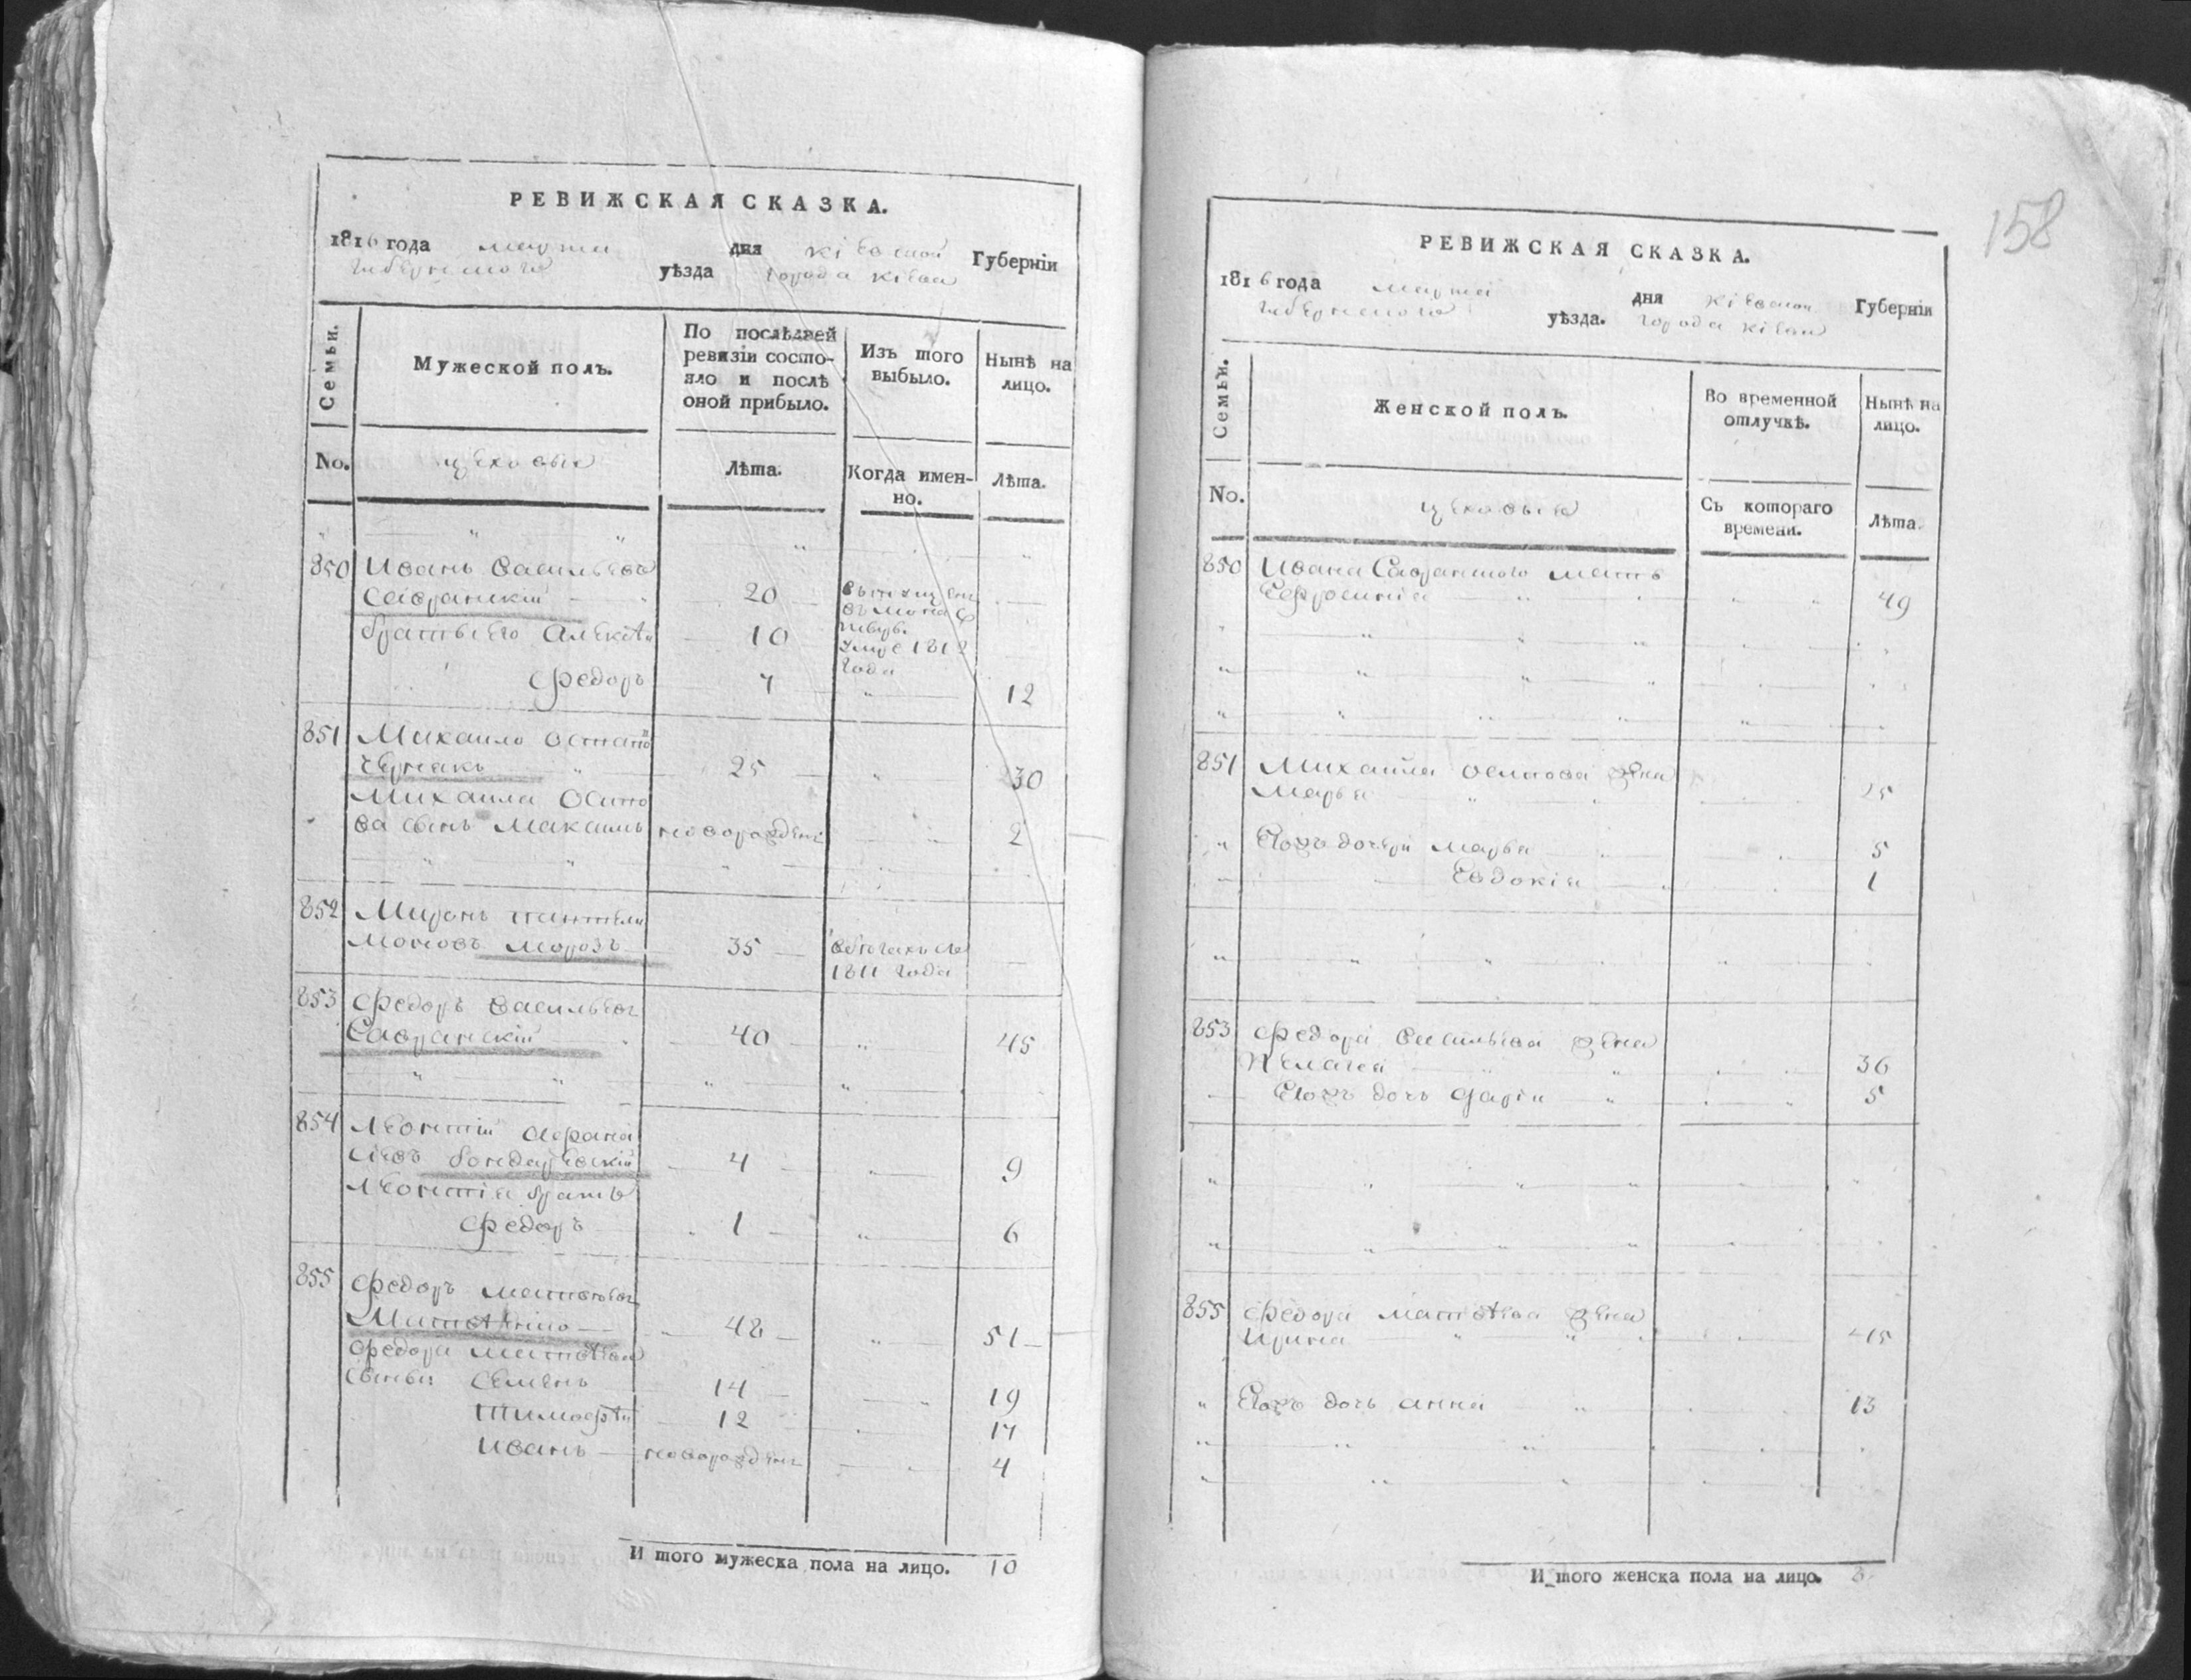 РЕВИЖСКАЯ СКАЗКА.
1816 года марта дня кіевской Губерніи
уѣзда города кіева
Семьи.
Мужеской полъ.
По послѣдней ревизіи состояло и послѣ оной прибыло.
Изъ того выбыло.
Нынѣ на лицо.
No.
цеховыя
Лѣта.
Когда именно.
Лѣта.
850 Иванъ Васильевъ
Савранскій 20
братъ его Алексѣй 10
1812 года
Федоръ 7 12
851 Михаило
Чермакъ 25 30
Михаила Осипо
ва сынъ Максимъ новорожденъ 2
852 Миронъ пантели
моновъ морозъ 35
1811 года
853 Федоръ Васильевъ
Савранскій 40 45
854 Леонтій Афана
сіевъ бондаревскій 4 9
Леонтія братъ
Федоръ 1 6
855 Федоръ матвѣевъ
48 51
Федора матвѣева
сыны: Семенъ 14 19
Тимофѣй 12 17
Иванъ новорожденъ 4
И того мужеска пола на лицо. 10
158
РЕВИЖСКАЯ СКАЗКА.
1816 года марта дня кіевской Губерніи
уѣзда. города кіева
Семьи.
Женской полъ.
Во временной отлучкѣ.
Нынѣ на лицо.
No.
цеховыя
Съ котораго времени.
Лѣта.
850 Ивана Савранского мать
Ефросинія 49
851 Михайла осипова жена
Марья 25
Елжъ дочери марья 5
Евдокія 1
853 Федора васильева жена
Пелагея 36
дочь Дарія 5
855 Федора матвѣева жена
Ирина 45
дочь анна 13
И того женска пола на лицо. 8